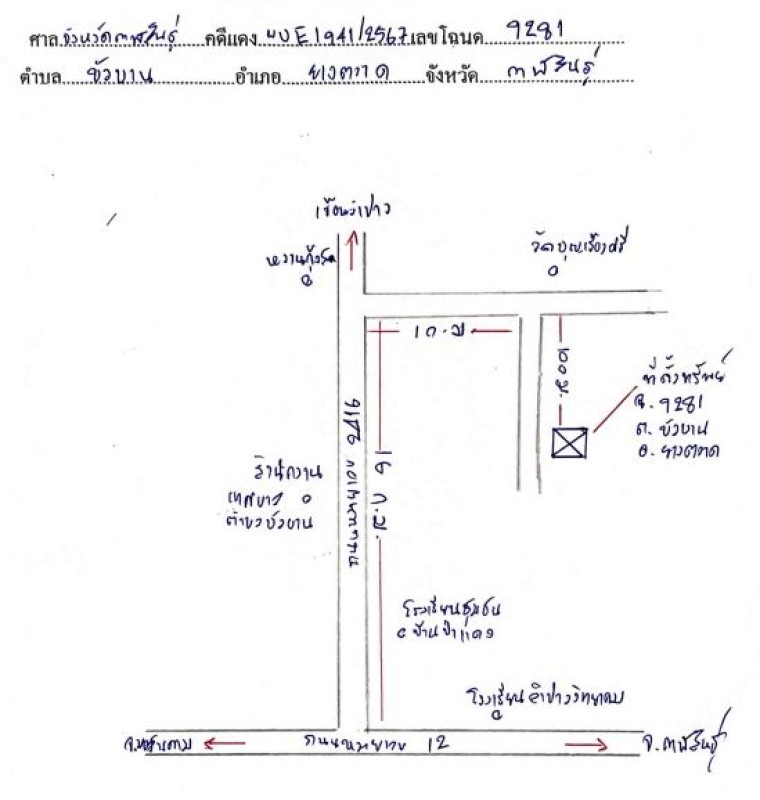 ศาล จังหวัดกาฬสินธุ์ คดีแดง ผบE1941/2567 เลขโฉนด 9281
ตำบล บัวบาน อำเภอ ยางตลาด จังหวัด กาฬสินธุ์
เขื่อนลำปาว
วัด
10 ม
100 ม.
ที่ตั้งทรัพย์
ฉ. 9281
ต. บัวบาน
อ. ยางตลาด
16 ก.ม.
สำนักงาน
เทศบาล
ตำบลบัวบาน
โรงเรียนชุมชน
บ้านป่าแดง
โรงเรียนลำปาววิทยาคม
ถนนหมายเลข 12
จ.กาฬสินธุ์